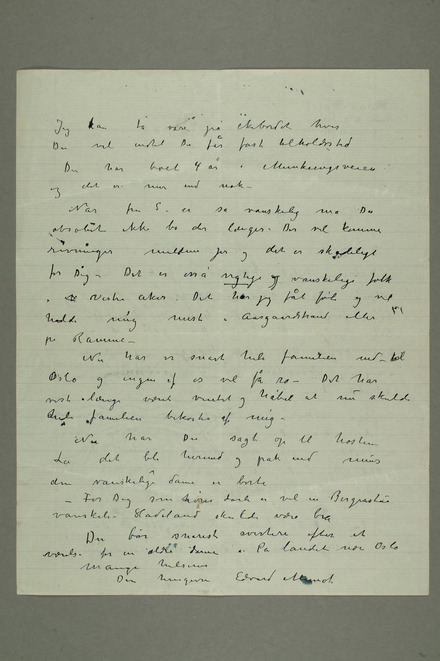 Jeg kan ta vare på skibordet hvis
Du vel indtil Du får fast tilholdssted
Du har boet 4 år i Munkengveien
og det er mer end nok –
Når fru S. er så vanskelig må Du
absolut ikke bo der længer. Der vil komme
rivninger mellem jer og det er skadeligt
for Dig – Det er også rigtige vanskelige folk
i Vestre Aker. Det har jeg fåt føle og vil
holde mig mest i Aasgaardstrand eller
på Ramme –
Nu har vi snart hele familien ved
Oslo og ingen af os vil få ro – Det har
vist længe været ventet og håbet at nu skulde
familien bekostes af mig –
Nu har Du sagt op til høsten
La det bli herved og pak ned mens
den vanskelige dame er borte
– For Dig som er vel en
vanskelig Hadeland skulde være bra
Du bør snarest avertere efter et
værelse for en ældre dame – På landet nær Oslo
Mange hilsener
Din hengivne Edvard Munch